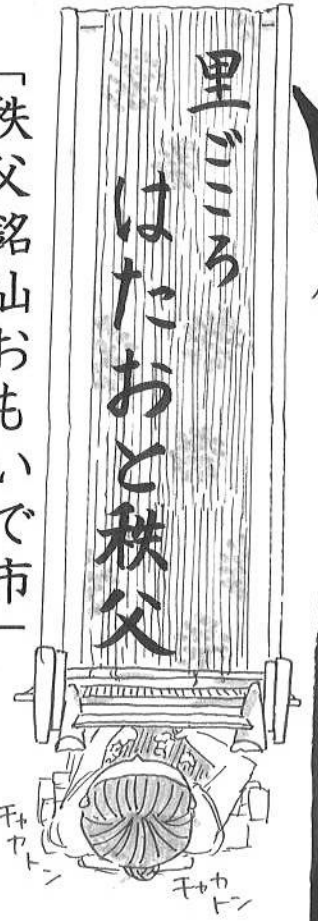 里ごころ
はたおと秩父
「秩父銘仙おもいで市」
チャカトン
チャカトン